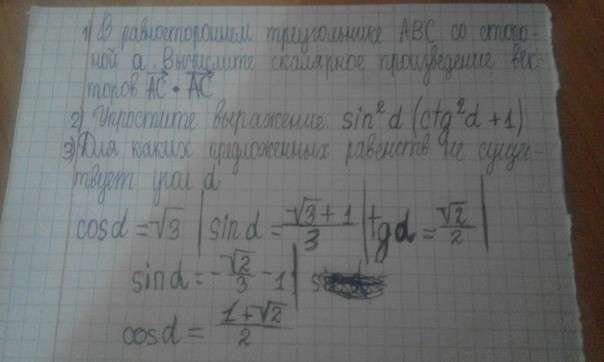 1) В равностороннем треугольнике ABC со сторо-
ной a. Вычислите скалярное произведение век-
торов AC • AC
2) Упростите выражение: sin²d (ctg²d + 1)
3) Для каких предложенных равенств не сущес-
твует угол d
cosd = √3 | sin d = (√3 + 1)/3 | tg d = √2/2 |
sin d = -√2/3 - 1 |
cosd = (1 + √2)/2